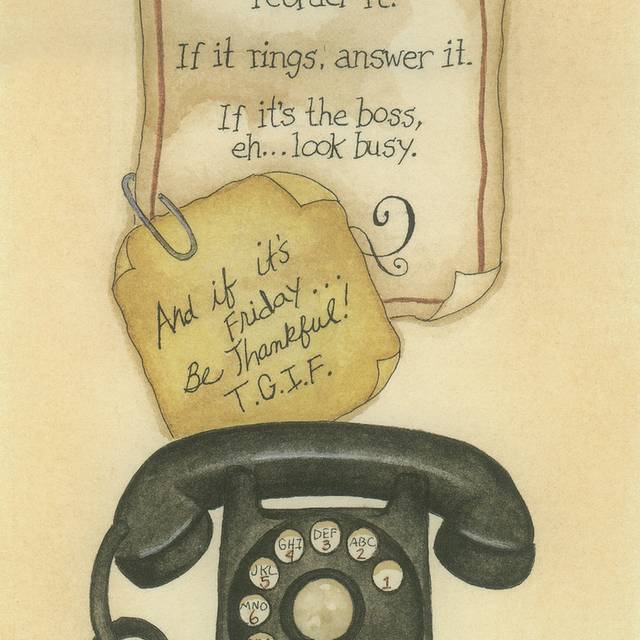 it.
If it rings, answer it.
If it's the boss,
eh...look busy.
And if it's
Friday...
Be Thankful!
T.G.I.F.
GHI
4
DEF
3
ABC
2
JKL
5
1
MNO
6